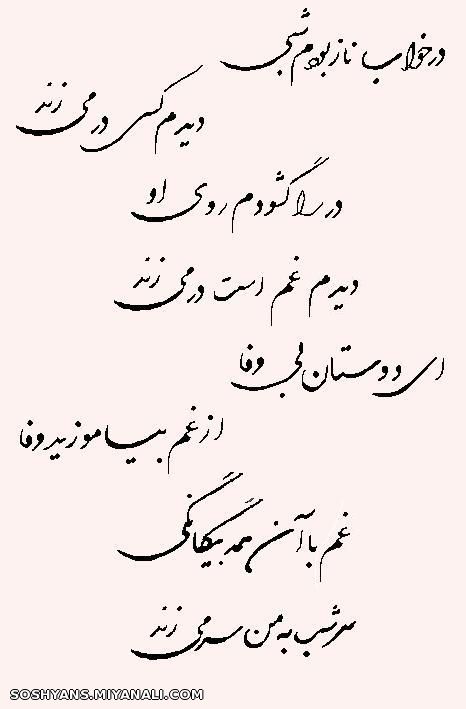 در خواب ناز بودم شبی
دیدم کسی در می زند
در را گشودم روی او
دیدم غم است در می زند
ای دوستان بی وفا
از غم بیاموزید وفا
غم با آن همه بیگانگی
هر شب به من سر می زند
SOSHYANS.MIYANALI.COM